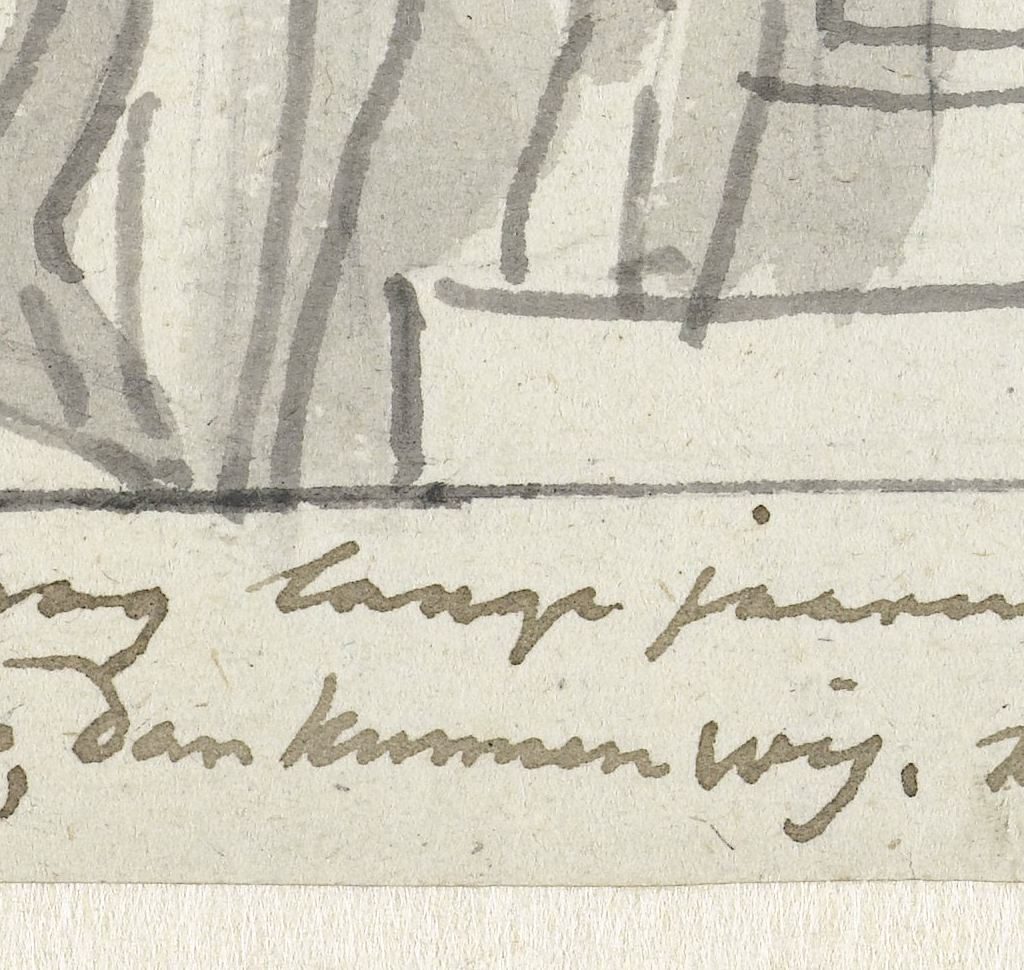 lange jaaren
dan kunnen wij.